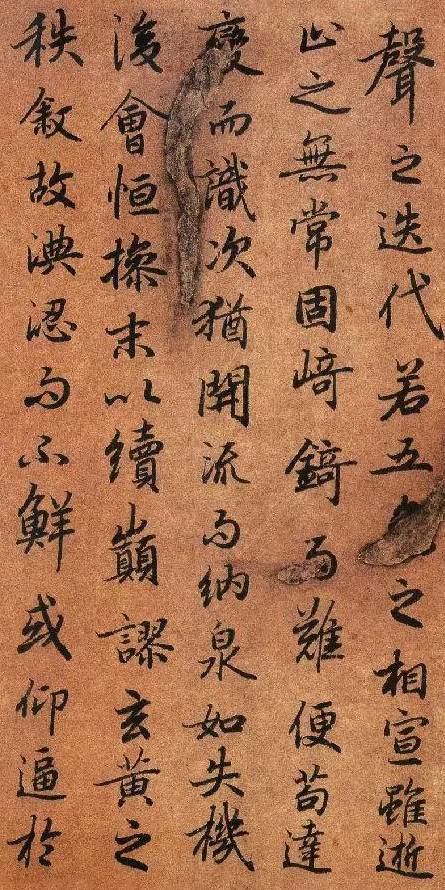 聲之迭代若五之相宣雖逝
止之無常固崎錡而難便苟達
變而識次猶開流而納泉如失機
後會恒操末以續巔謬玄黃之
秩敘故淟涊而不鮮或仰逼於